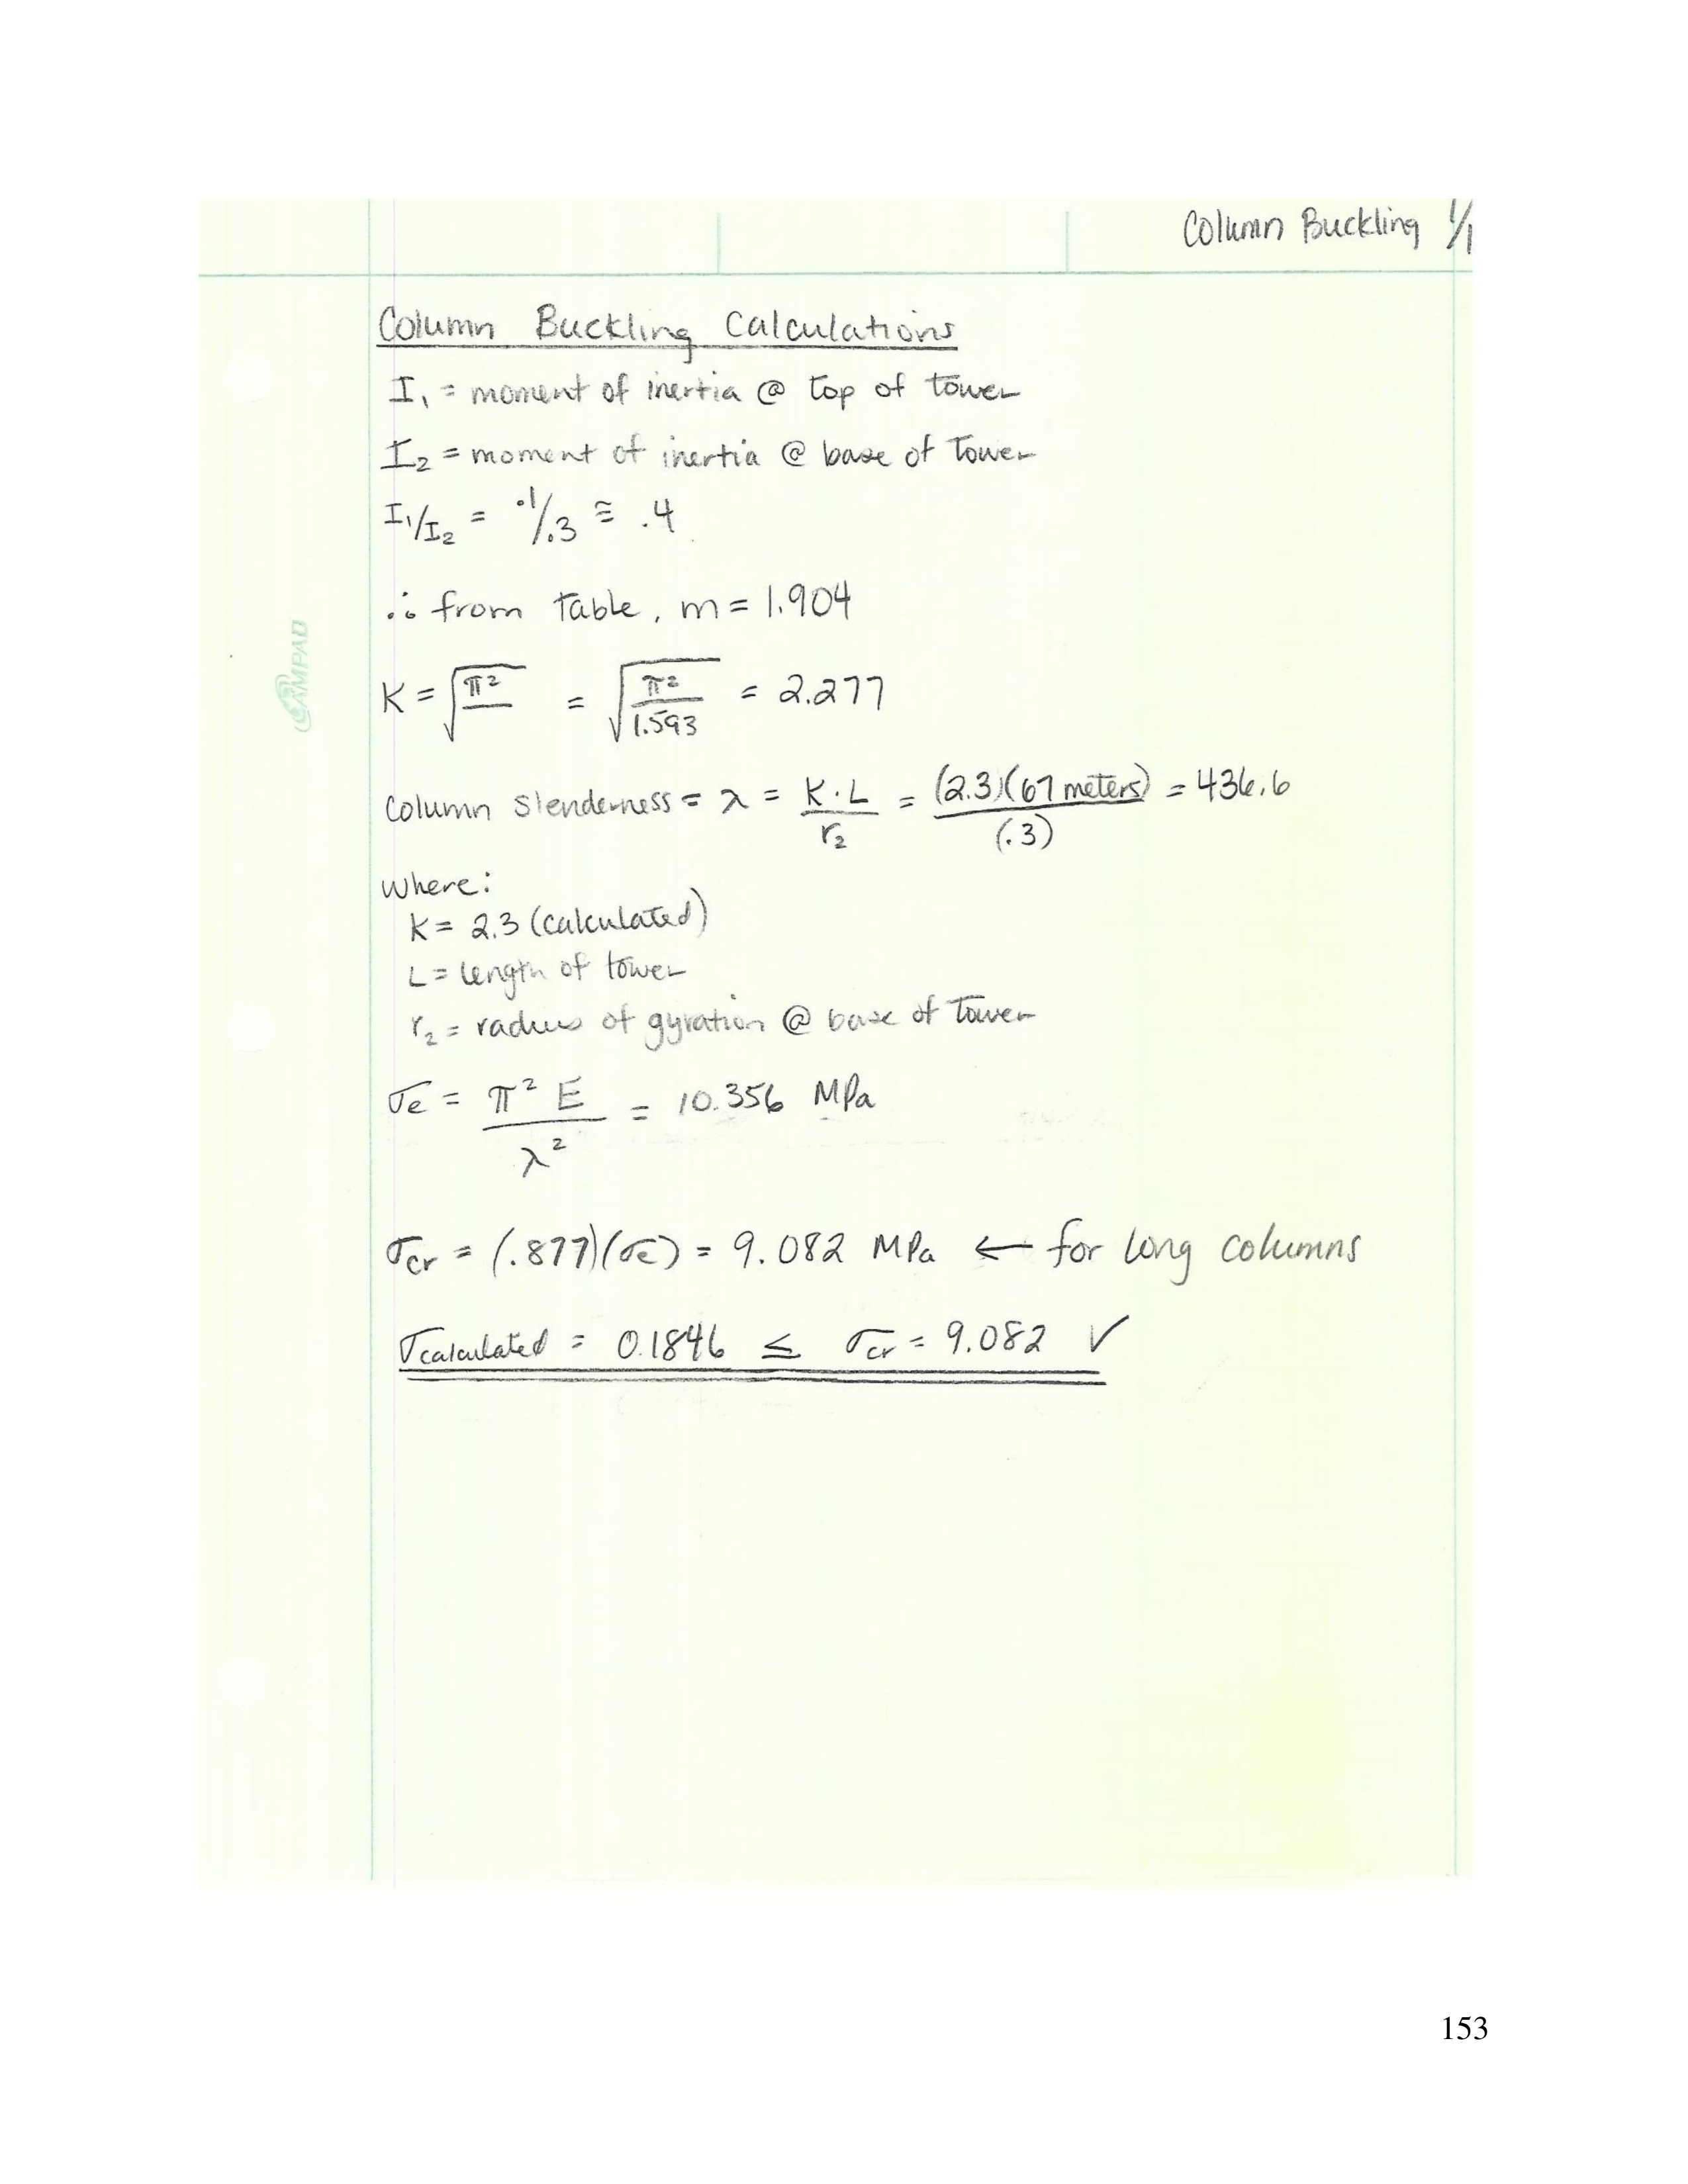 Column Buckling 1/1
Column Buckling Calculations
I₁ = moment of inertia @ top of tower
I₂ = moment of inertia @ base of tower
I₁/I₂ = .1/.3 ≅ .4
∴ from table, m = 1.904
K = √(π²/ ) = √(π²/1.593) = 2.277
Column Slenderness = λ = K·L/r₂ = (2.3)(67 meters)/(.3) = 436.6
where:
K = 2.3 (calculated)
L = length of tower
r₂ = radius of gyration @ base of tower
σe = π² E/λ² = 10.356 MPa
σcr = (.877)(σe) = 9.082 MPa ← for long columns
σcalculated = 0.1846 ≤ σcr = 9.082 ✓
AMPAD
153